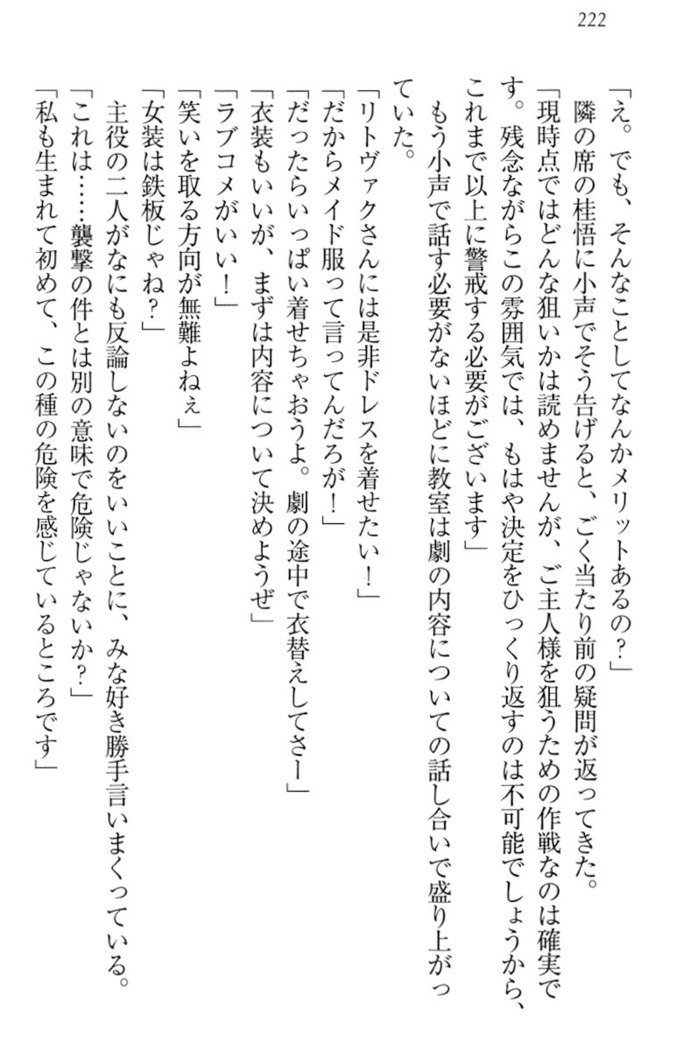 222
「え。でも、そんなことしてなんかメリットあるの？」
隣の席の桂悟に小声でそう告げると、ごく当たり前の疑問が返ってきた。
「現時点ではどんな狙いかは読めませんが、ご主人様を狙うための作戦なのは確実で
す。残念ながらこの雰囲気では、もはや決定をひっくり返すのは不可能でしょうから、
これまで以上に警戒する必要がございます」
もう小声で話す必要がないほどに教室は劇の内容についての話し合いで盛り上がっ
ていた。
「リトヴァクさんには是非ドレスを着せたい！」
「だからメイド服って言ってんだろが！」
「だったらいっぱい着せちゃおうよ。劇の途中で衣替えしてさー」
「衣装もいいが、まずは内容について決めようぜ」
「ラブコメがいい！」
「笑いを取る方向が無難よねぇ」
「女装は鉄板じゃね？」
主役の二人がなにも反論しないのをいいことに、みな好き勝手言いまくっている。
「これは……襲撃の件とは別の意味で危険じゃないか？」
「私も生まれて初めて、この種の危険を感じているところです」